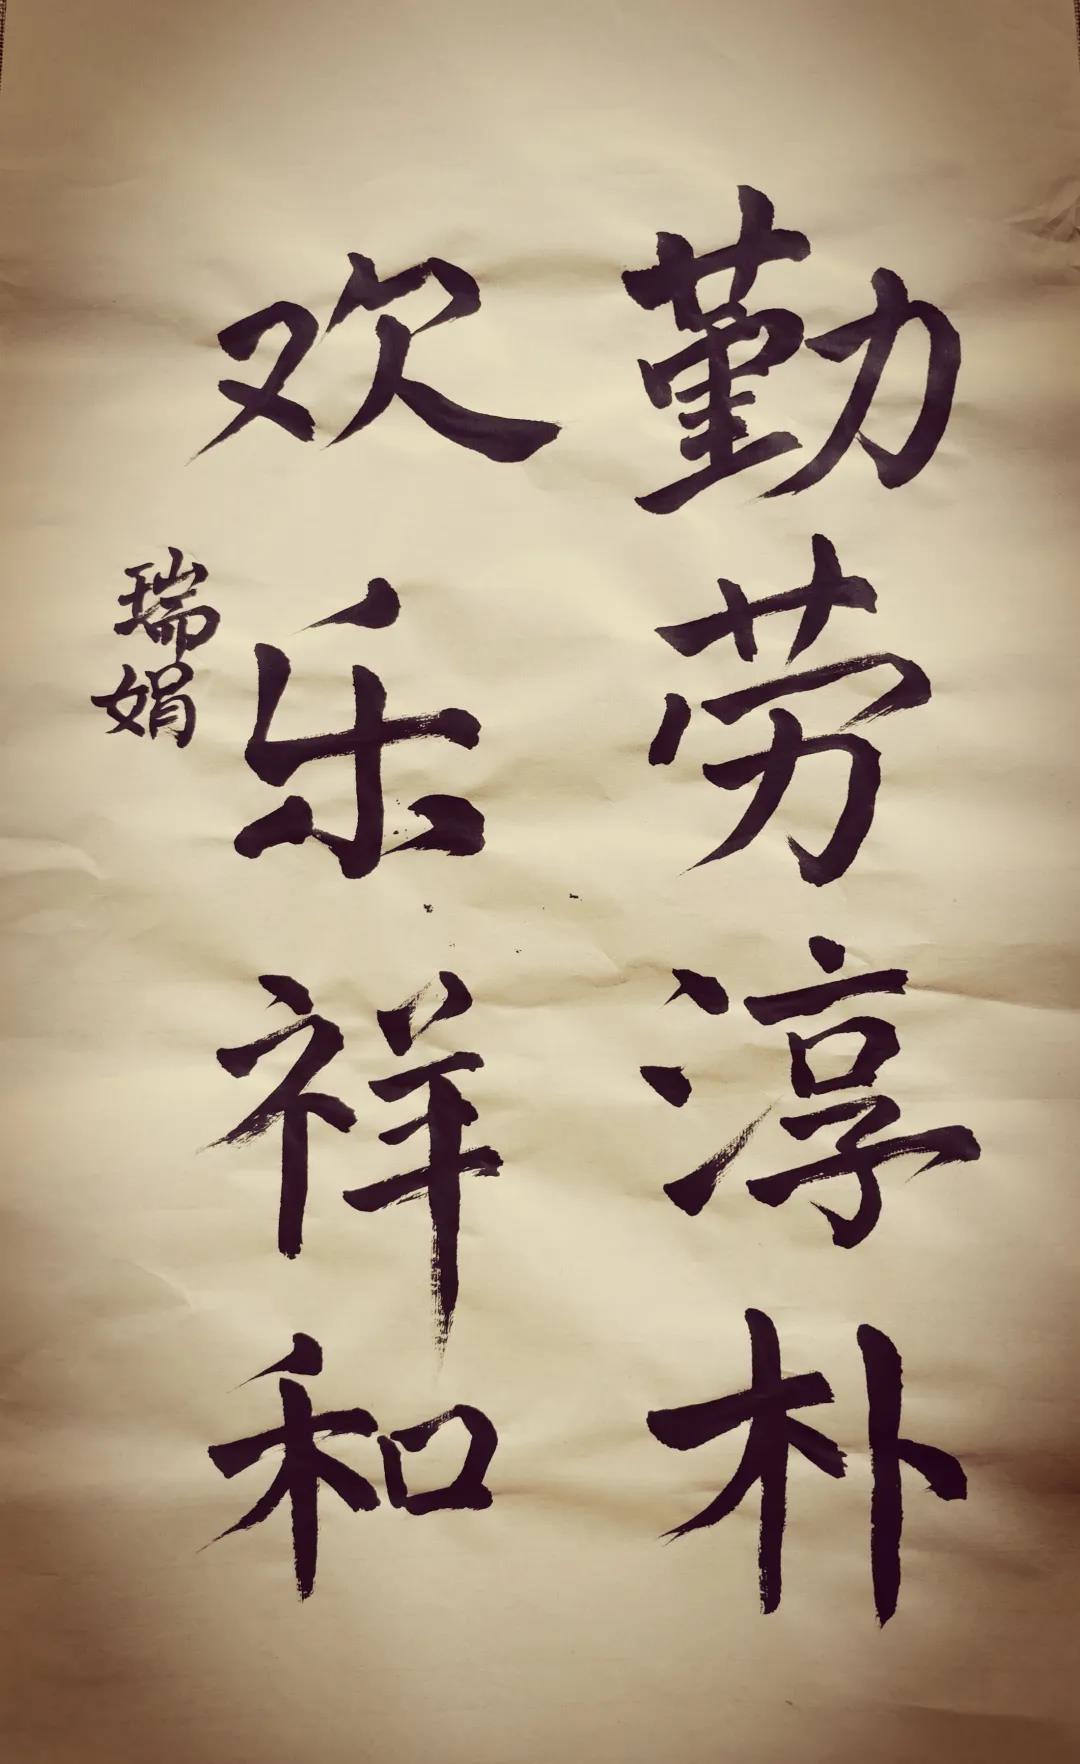 勤劳淳朴
欢乐祥和
瑞娟